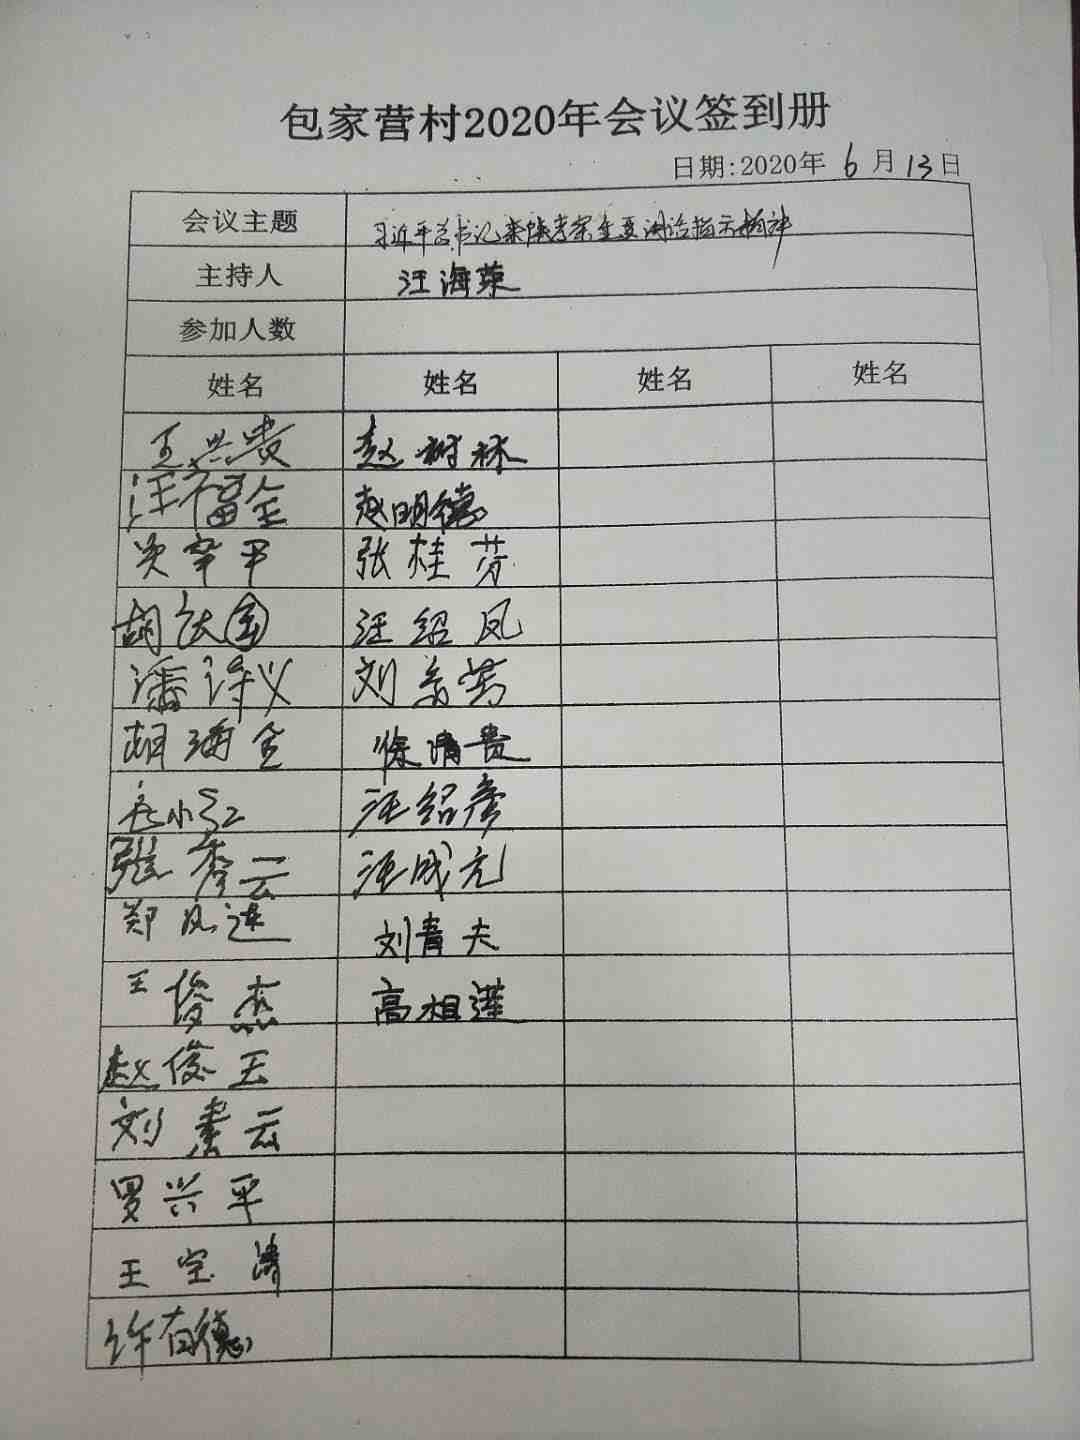 包家营村2020年会议签到册
日期:2020年 6 月 13 日
会议主题 习近平总书记来陕考察重要讲话指示精神
主持人 汪海荣
参加人数
姓名 姓名 姓名 姓名
王兴贵 赵树林
汪福全 赵明德
张桂芳
胡 汪绍凤
潘诗义 刘
胡满全 徐清贵
小红 汪绍彦
张秀云 汪成元
郑凤莲 刘青夫
王俊杰 高相莲
赵俊玉
刘 云
罗兴平
王宝涛
许有德